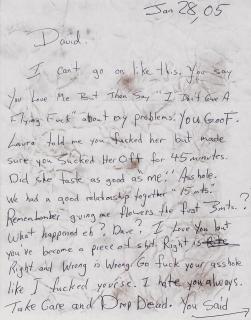 Jan 28, 05
David.
I cant go on like this. You say
You Love Me But Then Say "I Don't Give A
Flying Fuck" about my problems. YOU GOOF.
Laura told me you fucked her but made
sure you Sucked Her Off for 45 minutes.
Did she taste as good as me? Asshole.
We had a good relationship together "15 mts."
Remember giving me flowers the first 3mts..?
What happened eh? Dave? I Love You but
you've become a piece of shit. Right is
Right and Wrong is Wrong. Go fuck your asshole
like I fucked yours. I hate you always.
Take Care and Drop Dead. You Said